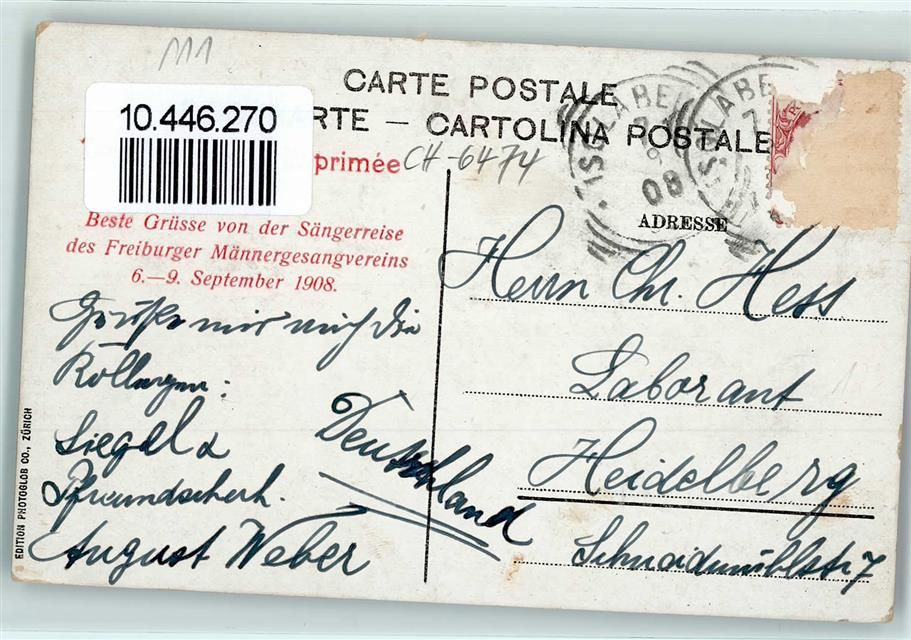 111
CARTE POSTALE
10.446.270
ARTE — CARTOLINA POSTALE
primée
CH-6474
ISOLABE
ISOLABE
08
ADRESSE
Beste Grüsse von der Sängerreise
des Freiburger Männergesangvereins
6.—9. September 1908.
Grüße mir auch die
Kollegen:
Siegel &
Pfreundscherh.
August Weber
Deutschland
Herrn Chr. Hess
Laborant
Heidelberg
Schneidmühlstr 7
EDITION PHOTOGLOB CO., ZÜRICH